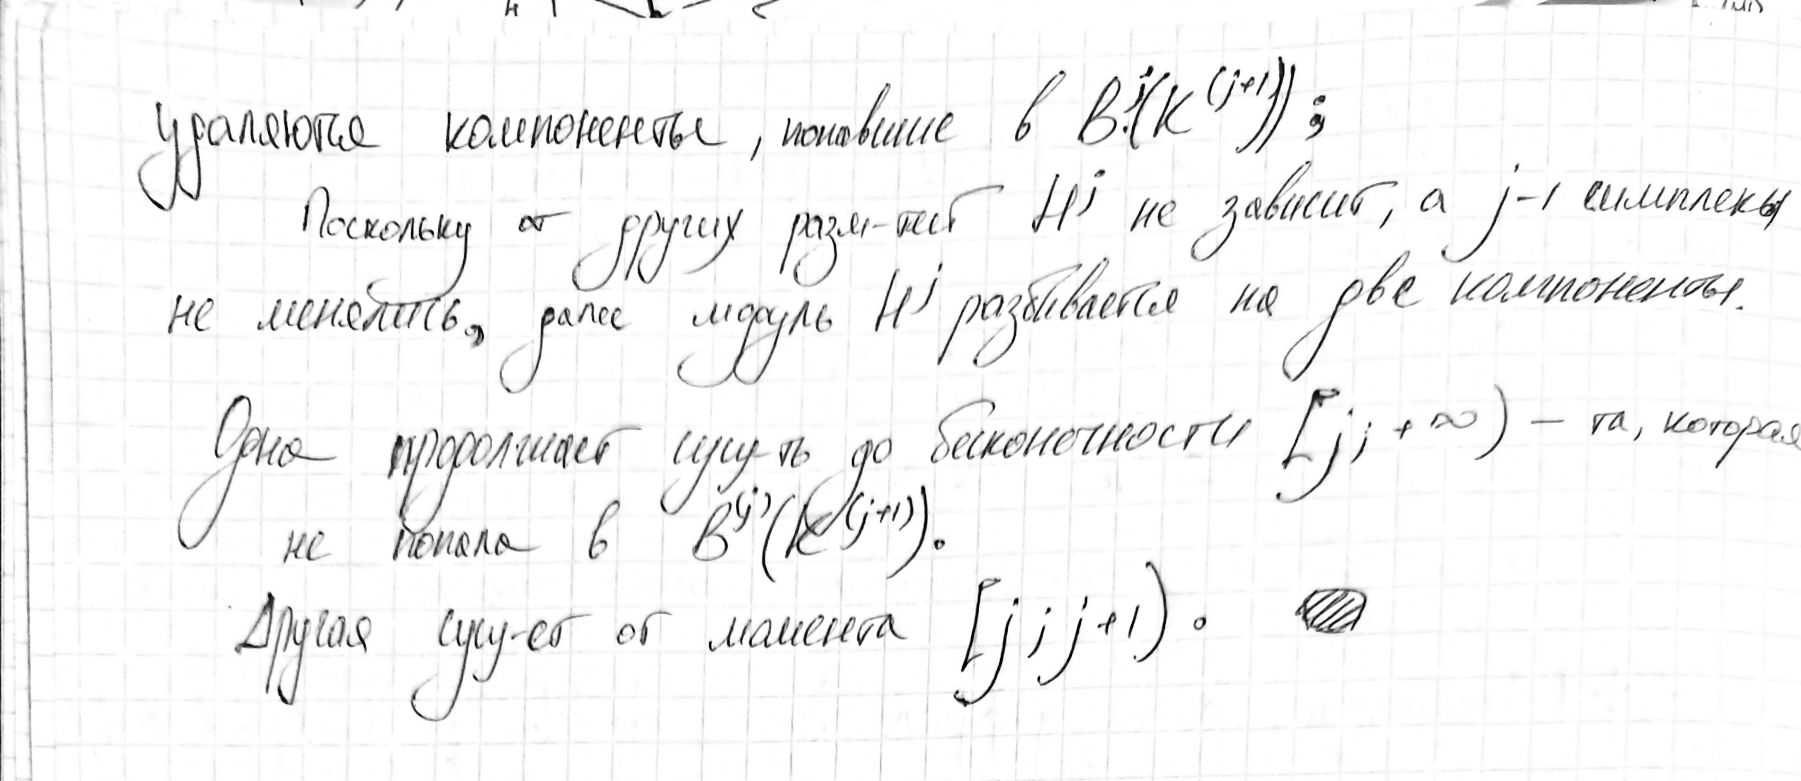 удаляются компоненты, попавшие в B^j(K^(j+1));
Поскольку от других разм-тей H^j не зависит, а j-1 симплексы
не менялись, далее модуль H^j разбивается на две компоненты.
Одна продолжает сущ-ть до бесконечности [j; +∞) – та, которая
не попала в B^(j)(K^(j+1)).
Другая сущ-ет от момента [j; j+1).